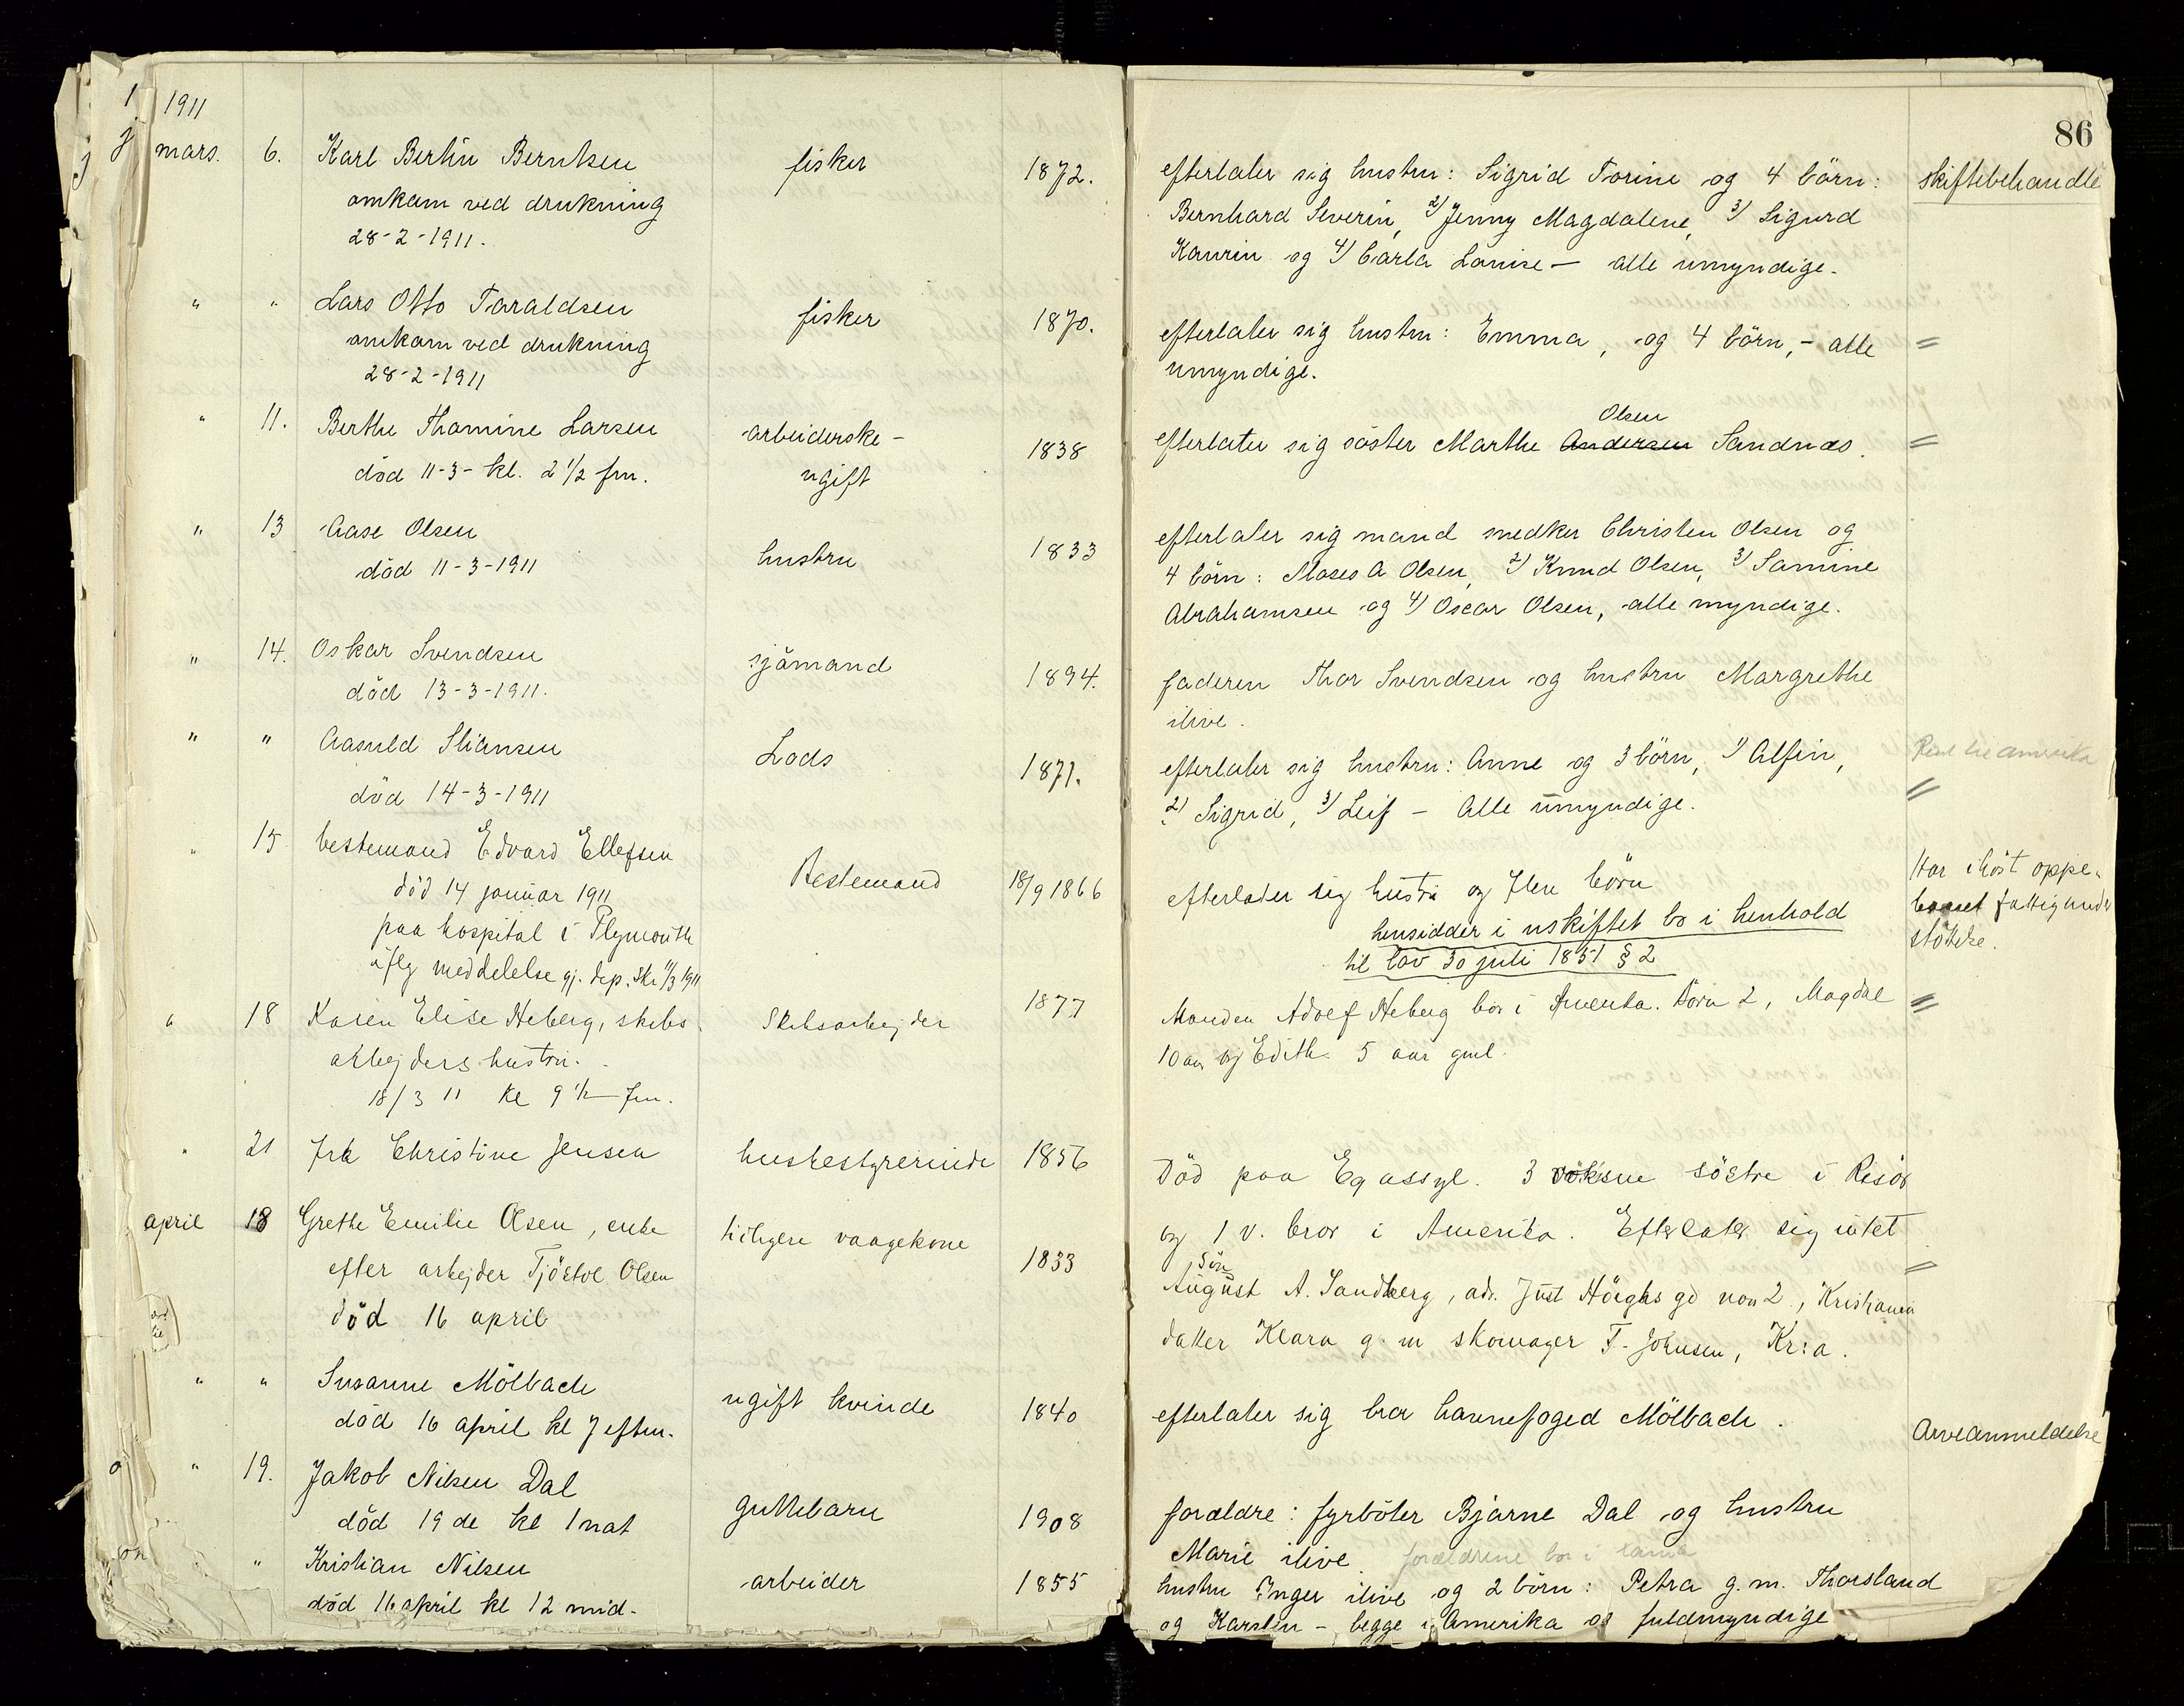 1911
86
mars. 6. Karl Bertin Berntsen fisker 1872. efterlater sig hustru: Sigrid Torine og 4 börn: Skiftebehandle
omkam ved drukning Bernhard Severin, 2) Jenny Magdalene, 3) Sigurd
28-2-1911. Kaurin og 4) Carla Lovise — alle umyndige.
" " Lars Otto Taraldsen fisker 1870. efterlater sig hustru: Emma, og 4 börn, - alle "
omkam ved drukning umyndige.
28-2-1911
" 11. Berthe Thomine Larsen arbeiderske - 1838 efterlater sig söster Marthe Andersen Olsen Sandnæs. "
död 11-3- kl. 2 1/2 fm. ugift
" 13 Aase Olsen hustru 1833 efterlater sig mand snedker Christen Olsen og
död 11-3-1911 4 börn: Moses A Olsen, 2) Knud Olsen, 3) Samine
Abrahamsen og 4) Oscar Olsen, alle myndige.
" 14. Oskar Svendsen sjömand 1894. faderen Thor Svendsen og hustru Margrethe
död 13-3-1911. ilive.
" " Aasuld Stiansen Lods 1871. efterlater sig hustru: Anne og 3 börn, 1) Alfin,
död 14-3-1911 2) Sigrid, 3) Leif - Alle umyndige. "
" 15 bestemand Edvard Ellefsen Bestemand 18/9 1866 efterlader sig hustru og flere börn Har i höst oppe-
död 14 januar 1911 hensidder i uskiftet bo i henhold baaret fattigunder
paa hospital i Plymouth til lov 30 juli 1851 § 2 stöttelse.
iflg meddelelse gj. dep. skr 11/3 1911
" 18 Karen Elise Heberg, skibs- Skibsarbejder 1877 Manden Adolf Heberg bor i Amerika. Börn 2, Magdal "
arbejders hustru. 10 aar og Edith 5 aar gml.
18/3 11 Kl 9 1/2 Fm.
" 21 Frk Christine Jensen husbestyrerinde 1856 Död paa Eg assyl. 3 voksne söstre i Risör
og 1 v. bror i Amerika. Efterlater sig intet
april 18 Grethe Emilie Olsen, enke tidligere vaagekone 1833 Sön August A. Sandberg, adr. Just Höeghs gd no 2, Kristiania "
efter arbejder Tjöstol Olsen datter Klara g. m skomager T. Johnsen, Kr:a.
död 16 april
" " Susanne Mölbach ugift kvinde 1840 efterlater sig bror havnefoged Mölbach. Arveanmeldelse
död 16 april kl 7 eftm.
" 19. Jakob Nilsen Dal guttebarn 1908 forældre: fyrböter Bjarne Dal og hustru
död 19 de kl 1 nat Marie ilive. forældrene bor i
" Kristian Nilsen arbeider 1855 hustru Inger ilive og 2 börn: Petra g.m. Thorsland
död 16 april kl 12 mid- og Karsten - begge i Amerika og fuldmyndige